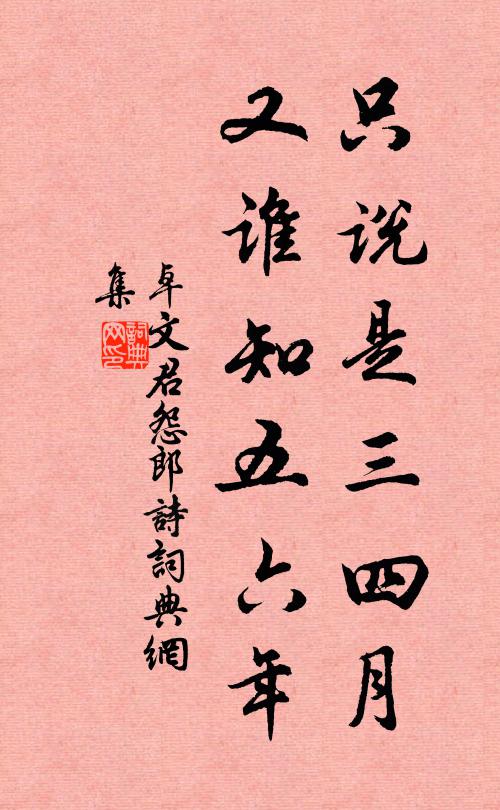 只说是三四月
又谁知五六年
卓文君怨郎詩詞典網
集
詞典网印